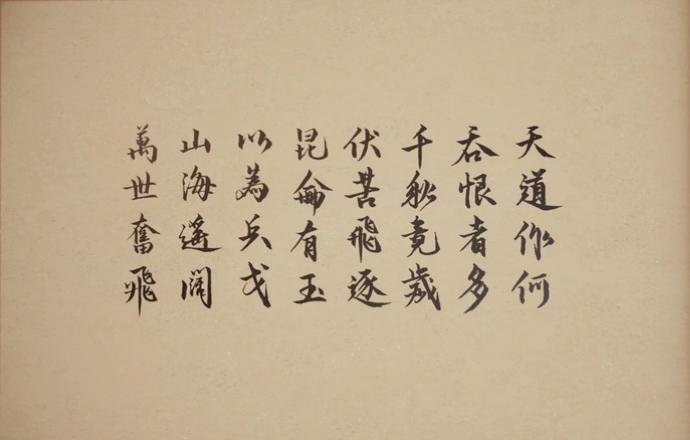 天道你何
吞恨者多
千秋竟歲
伏苦飛逐
昆侖有玉
以為兵戈
山海遥闊
萬世奮飛